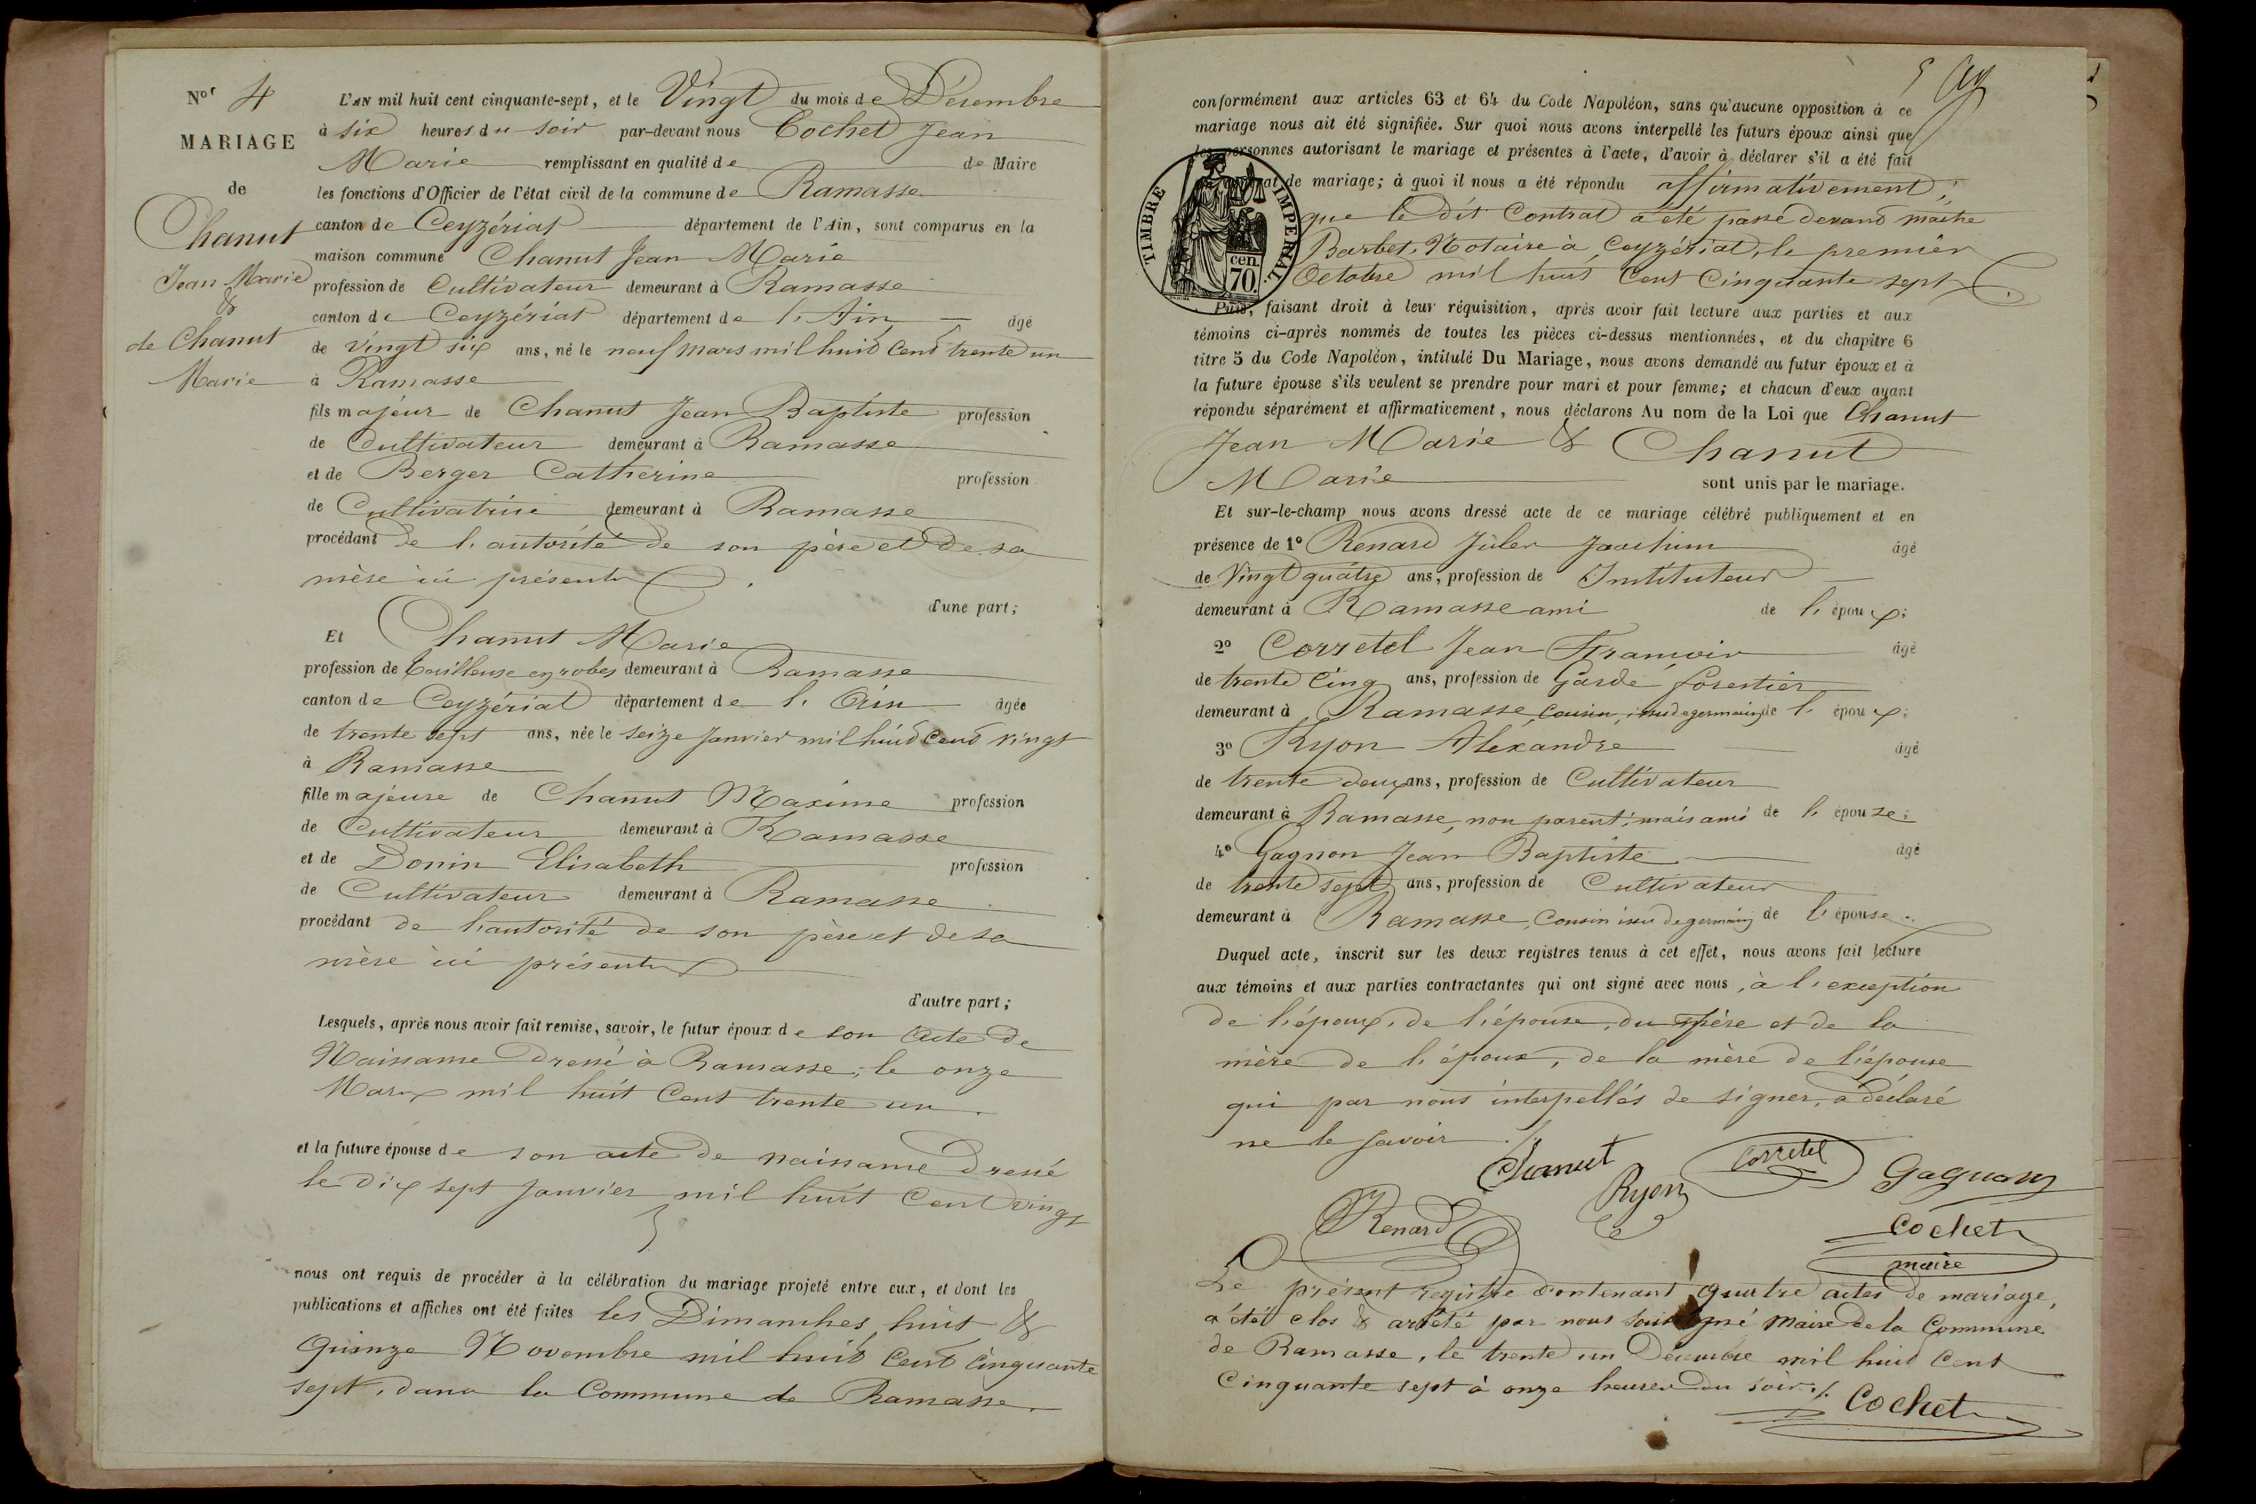 Nos 4
MARIAGE
de
Chanut
Jean Marie
&
de Chanut
Marie
L'AN mil huit cent cinquante-sept, et le Vingt du mois de Décembre
à six heures du soir par-devant nous Cochet Jean
Marie remplissant en qualité de de Maire
les fonctions d'Officier de l'état civil de la commune de Ramasse
canton de Ceyzériat département de l'Ain, sont comparus en la
maison commune Chanut Jean Marie
profession de Cultivateur demeurant à Ramasse
canton de Ceyzériat département de l'Ain âgé
de vingt six ans, né le neuf mars mil huit cent trente un
à Ramasse
fils majeur de Chanut Jean Baptiste profession
de Cultivateur demeurant à Ramasse
et de Berger Catherine profession
de Cultivatrice demeurant à Ramasse
procédant de l'autorité de son père et de sa
mère ici présents
d'une part;
Et Chanut Marie
profession de Tailleuse en robes demeurant à Ramasse
canton de Ceyzériat département de l'Ain âgée
de trente sept ans, née le seize Janvier mil huit cent vingt
à Ramasse
fille majeure de Chanut Maxime profession
de Cultivateur demeurant à Ramasse
et de Donin Elisabeth profession
de Cultivateur demeurant à Ramasse
procédant de l'autorité de son père et de sa
mère ici présents
d'autre part;
Lesquels, après nous avoir fait remise, savoir, le futur époux de son acte de
Naissance dressé à Ramasse, le onze
Mars mil huit cent trente un.
et la future épouse de son acte de naissance dressé
le dix sept Janvier mil huit cent vingt
nous ont requis de procéder à la célébration du mariage projeté entre eux, et dont les
publications et affiches ont été faites les Dimanches huit &
quinze Novembre mil huit cent cinquante
sept, dans la Commune de Ramasse.
conformément aux articles 63 et 64 du Code Napoléon, sans qu'aucune opposition à ce
mariage nous ait été signifiée. Sur quoi nous avons interpellé les futurs époux ainsi que
les personnes autorisant le mariage et présentes à l'acte, d'avoir à déclarer s'il a été fait
contrat de mariage; à quoi il nous a été répondu affirmativement,
que le dit Contrat a été passé devant maître
Barbet, Notaire à Ceyzériat, le premier
Octobre mil huit cent cinquante sept.
TIMBRE IMPERIAL.
70 cen.
Puis, faisant droit à leur réquisition, après avoir fait lecture aux parties et aux
témoins ci-après nommés de toutes les pièces ci-dessus mentionnées, et du chapitre 6
titre 5 du Code Napoléon, intitulé Du Mariage, nous avons demandé au futur époux et à
la future épouse s'ils veulent se prendre pour mari et pour femme; et chacun d'eux ayant
répondu séparément et affirmativement, nous déclarons Au nom de la Loi que Chanut
Jean Marie & Chanut
Marie sont unis par le mariage.
Et sur-le-champ nous avons dressé acte de ce mariage célébré publiquement et en
présence de 1º Renard Jules Joachim âgé
de Vingt quatre ans, profession de Instituteur
demeurant à Ramasse ami de l'époux;
2º Corretel Jean François âgé
de trente cinq ans, profession de Garde forestier
demeurant à Ramasse, cousin, issu de germain, de l'époux;
3º Ryon Alexandre âgé
de trente deux ans, profession de Cultivateur
demeurant à Ramasse, non parent, mais ami de l'épouze;
4º Gagnon Jean Baptiste âgé
de trente sept ans, profession de Cultivateur
demeurant à Ramasse, Cousin issu de germain de l'épouse.
Duquel acte, inscrit sur les deux registres tenus à cet effet, nous avons fait lecture
aux témoins et aux parties contractantes qui ont signé avec nous, à l'exception
de l'époux, de l'épouse, du père et de la
mère de l'époux, de la mère de l'épouse
qui par nous interpellés de signer, a déclaré
ne le savoir ./.
Chanut Corretel Gagnon
Renard Ryon Cochet
maire
Le présent Registre contenant quatre actes de mariage,
a été clos & arrêté par nous soussigné Maire de la Commune
de Ramasse, le trente un Décembre mil huit Cent
Cinquante sept à onze heures du soir ./.
Cochet